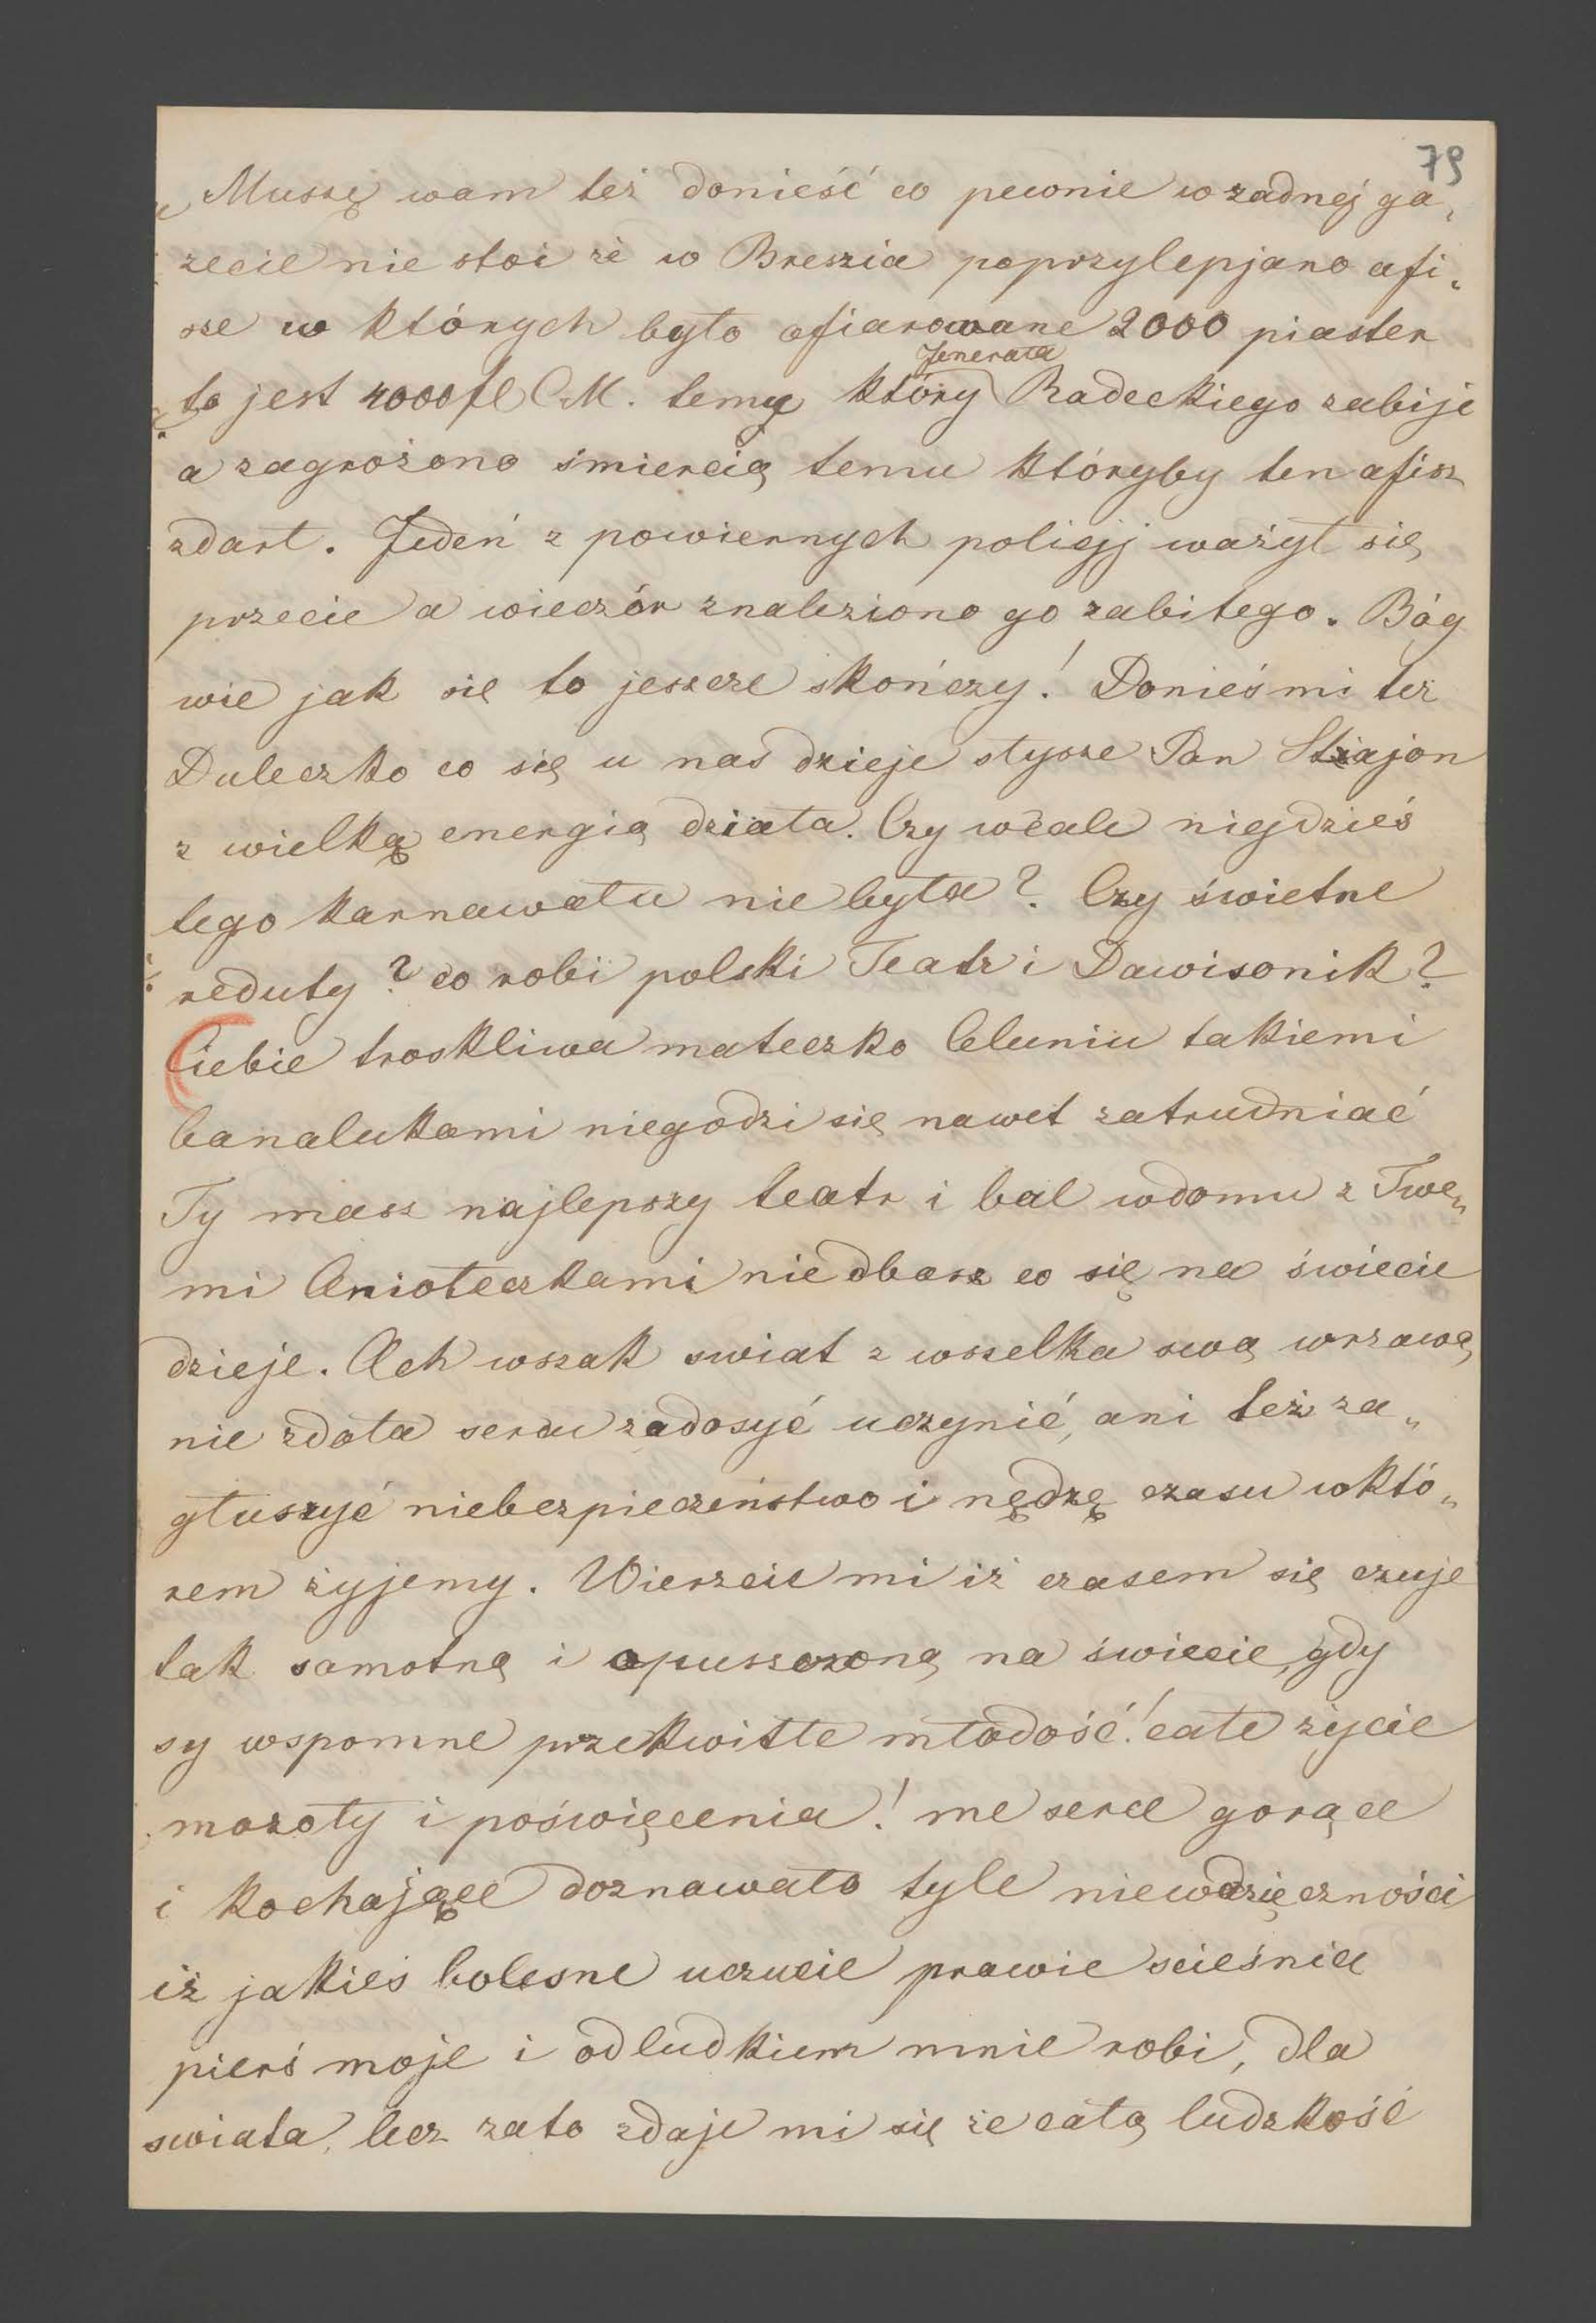 79
Muszę wam też donieść co pewnie w żadnéj ga„
zecie nie stoi że w Breszia poprzylepjano afi„
sze w których było ofiarowane 2000 piaster
Jenerała
to jest 4000 fl CM. temu który Radeckiego zabije
a zagrożono śmiercią temu któryby ten afisz
zdarł. Jedeń z powiernych policjj ważył się
przecie a wieczór znaleziono go zabitego. Bóg
wie jak się to jeszcze skończy! Donieś mi też
Duleczko co się u nas dzieje słysze Pan Stiajon
z wielką energią działa. Czy wcale niejdzieś
tego karnawału nie była? Czy świetne
reduty? co robi polski Teatr i Dawisonik?
Ciebie troskliwa mateczko Celuniu takiemi
banalukami niegodzi się nawet zatrudniać
Ty masz najlepszy teatr i bal w domu z Twe„
mi Aniołeczkami nie dbasz co się na świecie
dzieje. Ach wszak swiat z wszelka swą wrzawą
nie zdoła sercu zadosyć uczynić, ani też za„
głuszyć niebezpieczeństwo i nędzę czasu w któ„
rem żyjemy. Wierzcie mi iż czasem się czuje
tak samotną i opuszczoną na świecie, gdy
sy wspomne przekwitłe młodość! całe życie
mozoły i poświęcenia! me serce gorące
i kochające doznawało tyle niewdzięczności
iż jakieś bolesne uczucie prawie scieśnia
pierś moje i odludkiem mnie robi, dla
swiata, lecz zato zdaje mi się że całą ludzkość